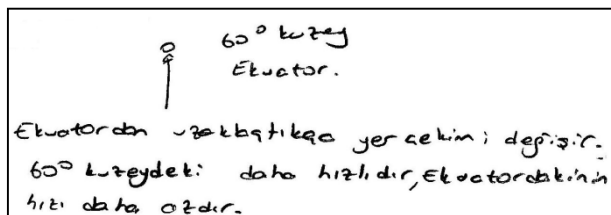 60° kuzey
Ekvator.
Ekvatordan uzaklaştıkça yer çekimi değişir.
60° kuzeydeki daha hızlıdır, Ekvatordakinin
hızı daha azdır.